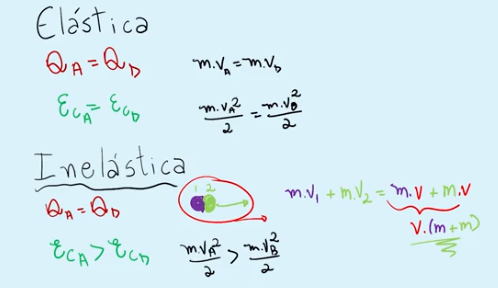 Elástica
Q_A = Q_D
m.V_A = m.V_D
ε_CA = ε_CD
m.V_A²/2 = m.V_D²/2
Inelástica
1 2
Q_A = Q_D
m.V₁ + m.V₂ = m.V + m.V
V.(m+m)
ε_CA > ε_CD
m.V_A²/2 > m.V_D²/2